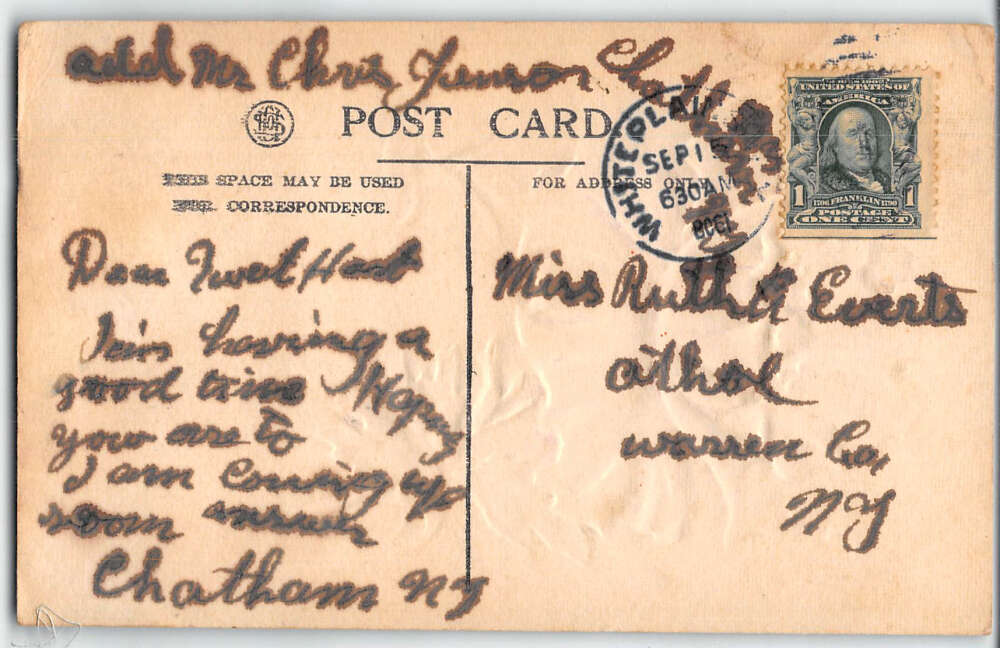 add Mr Chris Jenson Chatham
POST CARD
THIS SPACE MAY BE USED
FOR CORRESPONDENCE.
FOR ADDRESS ONLY
WHITE PLAINS
SEP 15
630AM
1908
SERIES 1902
UNITED STATES OF
AMERICA
1 1706 FRANKLIN 1790 1
POSTAGE
ONE CENT
Dear Swet Hart
I'm having a
good time Hoping
you are to
I am Coming up
soon answer
Chatham NY
Miss Ruth Everts
athol
warren Co,
NY